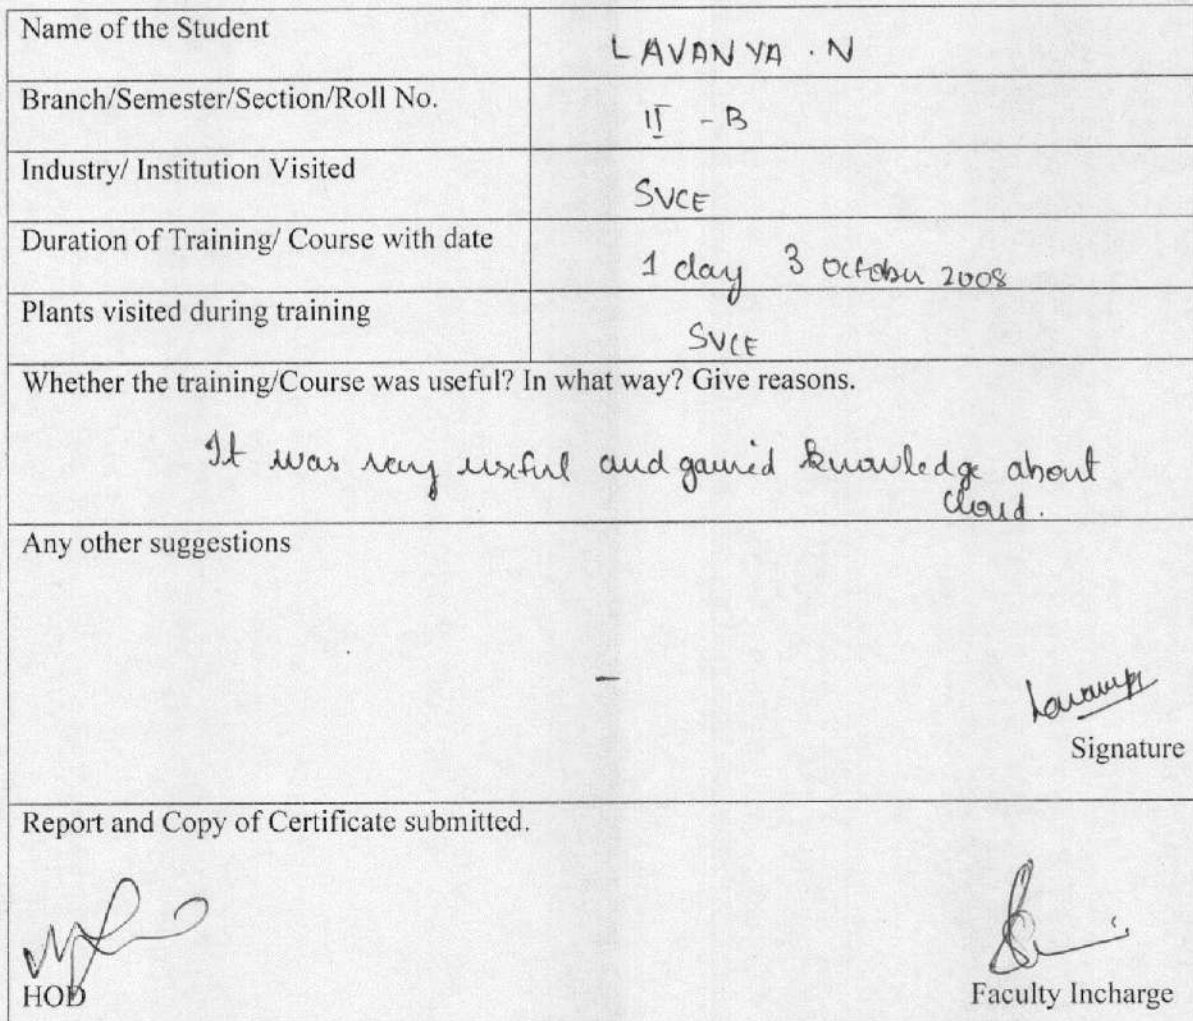 Name of the Student
LAVANYA . N
Branch/Semester/Section/Roll No.
II - B
Industry/ Institution Visited
SVCE
Duration of Training/ Course with date
1 day 3 October 2008
Plants visited during training
SVCE
Whether the training/Course was useful? In what way? Give reasons.
It was very useful and gained knowledge about
cloud.
Any other suggestions
-
Lavanya
Signature
Report and Copy of Certificate submitted.
HOD
Faculty Incharge